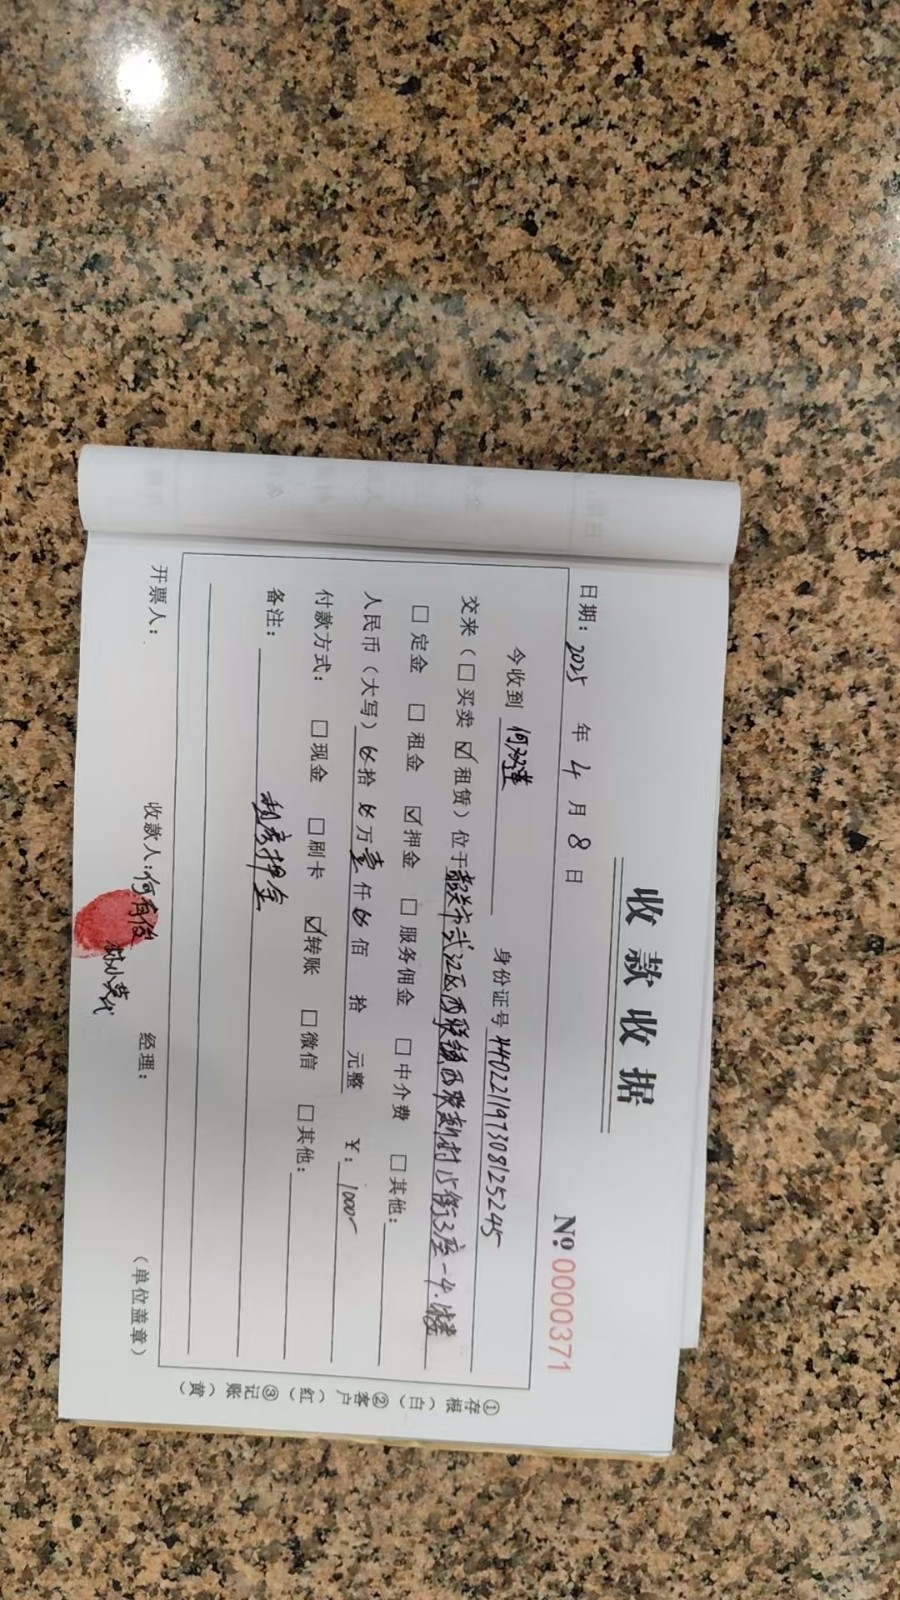 收款收据
№ 0000371
日期：2025 年 4 月 8 日
今收到 何 身份证号 440221197308125245
交来（□买卖 ☑租赁）位于韶关市武江区西联镇西联新村15街3座一4楼
□定金 □租金 ☑押金 □服务佣金 □中介费 □其他：
人民币（大写） 拾 万壹仟 佰 拾 元整 ￥：1000-
付款方式： □现金 □刷卡 ☑转账 □微信 □其他：
备注： 租房押金
开票人： 收款人：何有俊 林小英代 经理： （单位盖章）
①存根（白）②客户（红）③记账（黄）